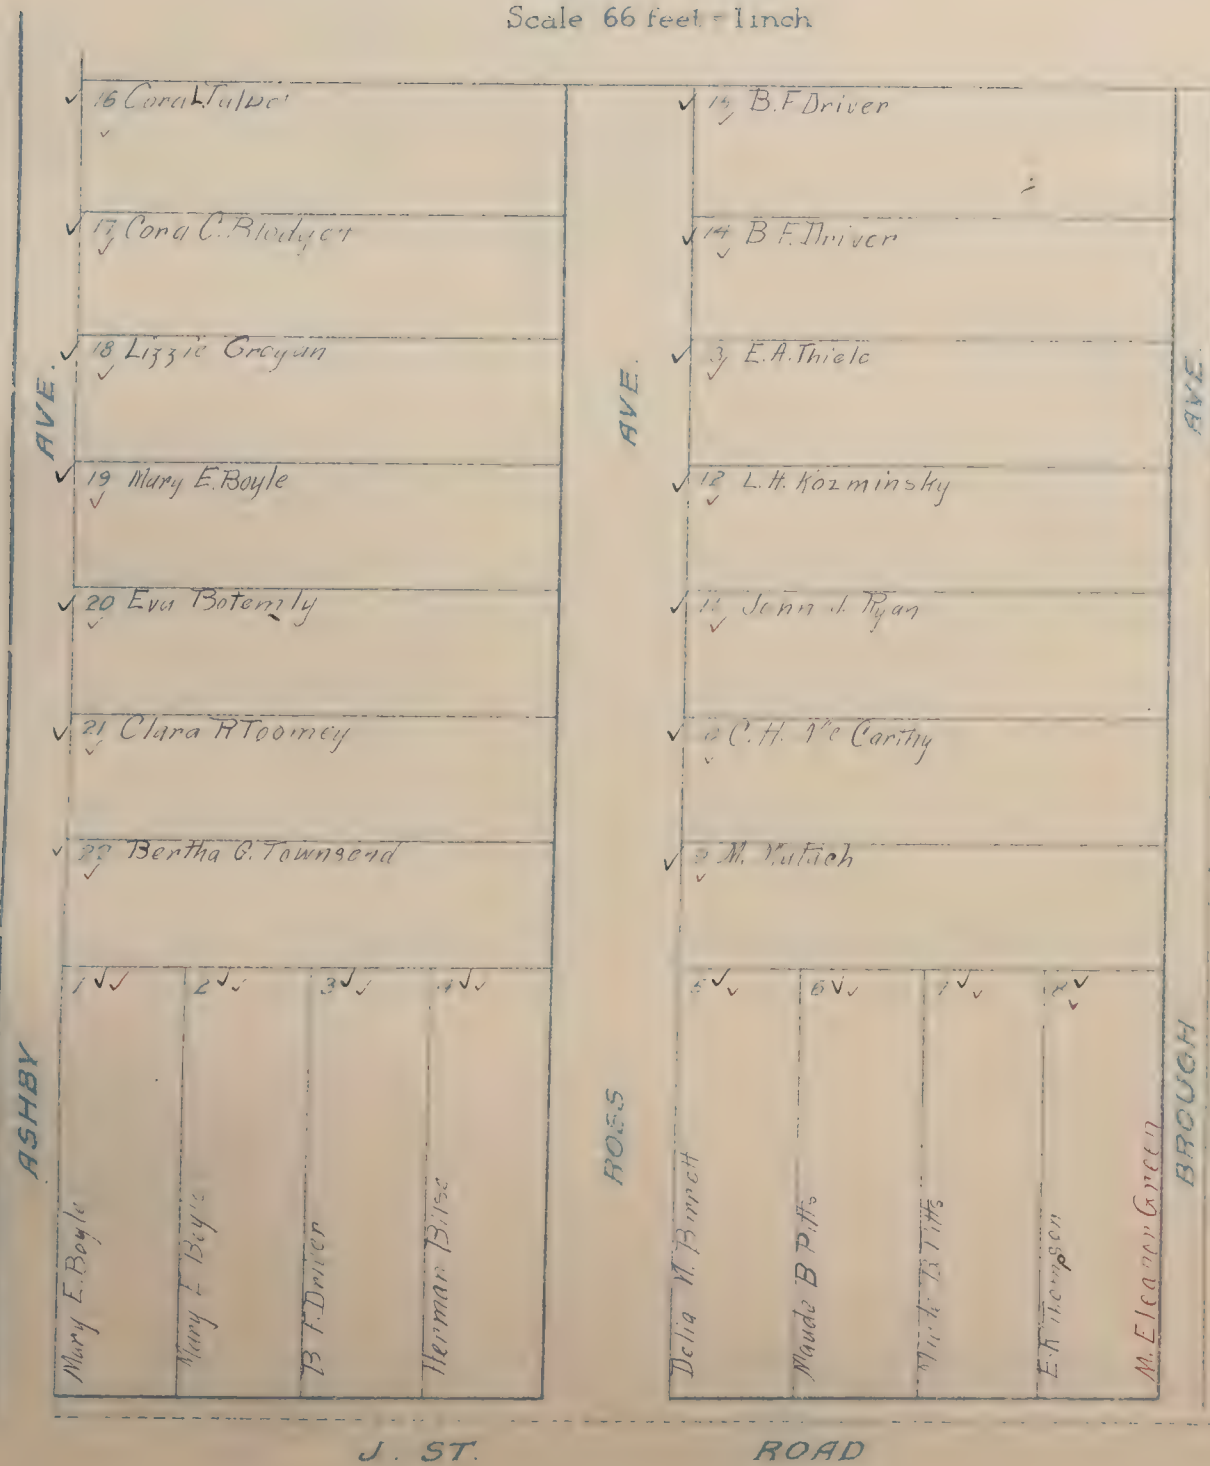 Scale 66 feet = 1 inch
16 Cora L. Talbot
17 Cora C. Blodget
18 Lizzie Grogan
19 Mary E. Boyle
20 Eva Botemly
21 Clara R Toomey
22 Bertha G. Townsend
15 B. F Driver
14 B F. Driver
3 E. A. Thiele
12 L. H. Kozminsky
11 John J. Ryan
C. H. Mc Carthy
9 M.
1
2
3
4
5
6
7
8
Mary E. Boyle
Mary E Boyle
B F. Driver
Herman
Delia
Maude B Pitts
B Pitts
E. Thompson
M. Eleanor Green
ASHBY AVE.
ROSS AVE.
BROUGH AVE.
J. ST. ROAD